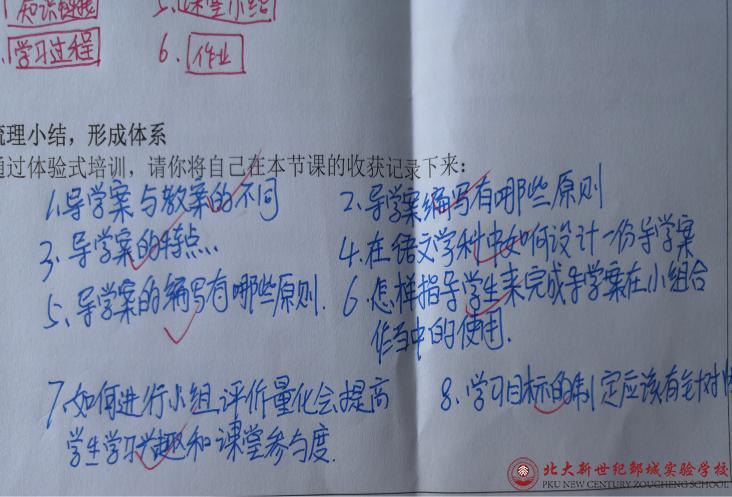 知识链接 5、课堂小结
学习过程 6、作业
梳理小结，形成体系
通过体验式培训，请你将自己在本节课的收获记录下来：
1.导学案与教案的不同 2、导学案编写有哪些原则
3、导学案的特点… 4、在语文学科中如何设计一份导学案
5、导学案的编写有哪些原则. 6、怎样指导学生来完成导学案在小组合
作当中的使用.
7、如何进行小组评价量化会提高 8、学习目标的制定应该有针对性
学生学习兴趣和课堂参与度.
北大新世纪邹城实验学校
PKU NEW CENTURY ZOUCHENG SCHOOL